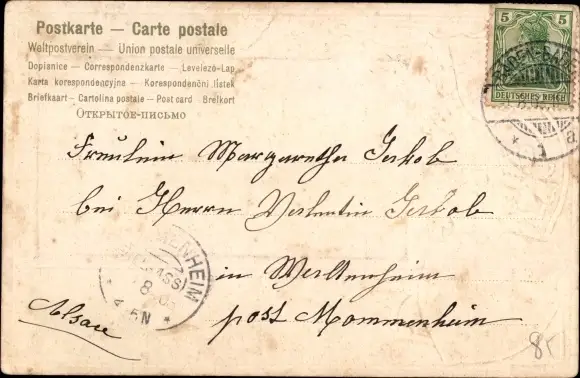 Postkarte — Carte postale
Weltpostverein — Union postale universelle
Dopisnice — Correspondenzkarte — Levelező-Lap
Karta korespondencyjna — Korespondenční lístek
Briefkaart — Cartolina postale — Post card Brefkort
ОТКРЫТОЕ-ПИСЬМО
5 5
DEUTSCHES REICH
BADEN-BADEN
Fräulein Margaretha Jakob
bei Herrn Valentin Jakob
in Waltenheim
post Mommenheim
Alsace
MOMMENHEIM
8
4-5N
85